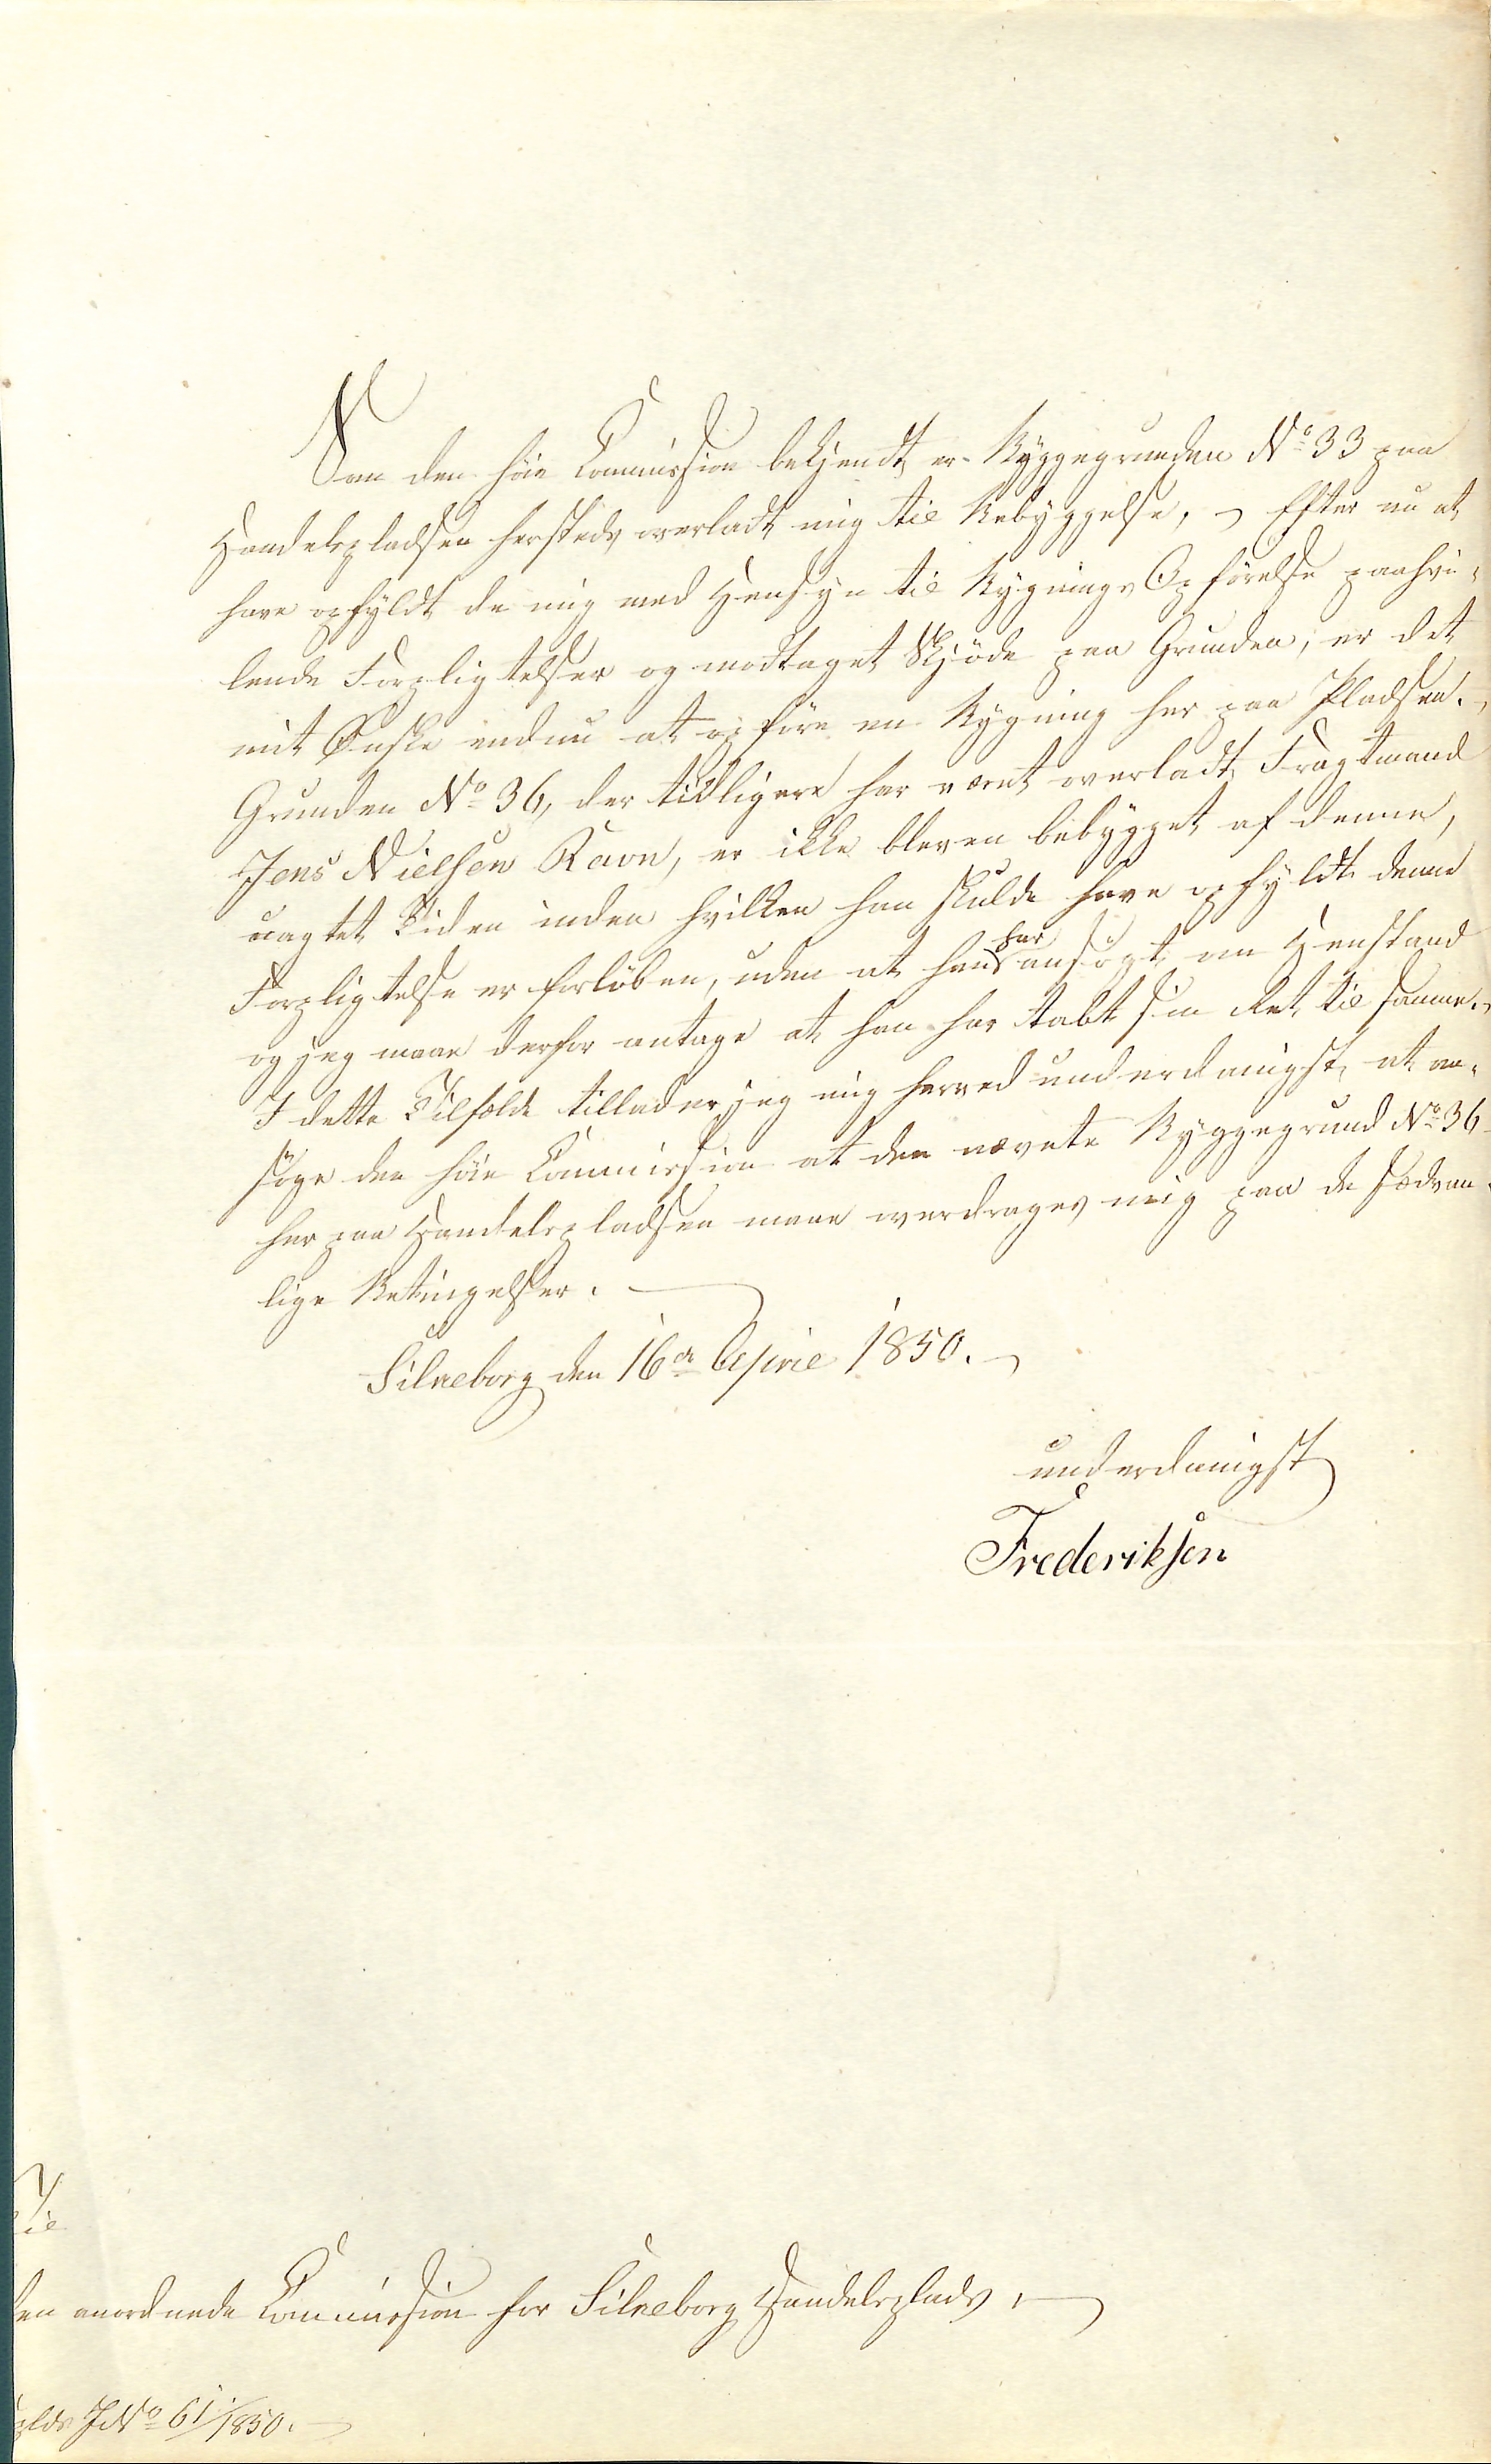 Som den høie Commission bekjendt er Byggegrunden No 33 paa
Handelspladsen hersteds overladt mig til Bebyggelse, - Efter nu at
have opfyldt de mig med Hensyn til Bygnings Opførelse paahvi-
lende Forpligtelser og modtaget Skjøde paa Grunden, er det
mit Ønske endnu at opføre en Bygning her paa Pladsen. -
Grunden No 36, der tidligere har været overladt Fragtmand
Jens Nielsen Ravn, er ikke bleven bebygget af denne,
uagtet Tiden inden hvilken han skulde have opfyldt denne
Forpligtelse er forløben, uden at han har ansøgt om Henstand
og jeg maae derfor antage at han har tabt sin Ret til samme. -
I dette Tilfælde tillader jeg mig herved underdanigst at an-
søge den høie Commission at den nævnte Byggegrund No 36
her paa Handelspladsen maae overdrages mig paa de sædvan-
lige Betingelser. -
Silkeborg den 16de April 1850. -
underdanigst
Frederiksen
Til
den anordnede Commission for Silkeborg Handelsplads. -
plds J No 61/1850. -